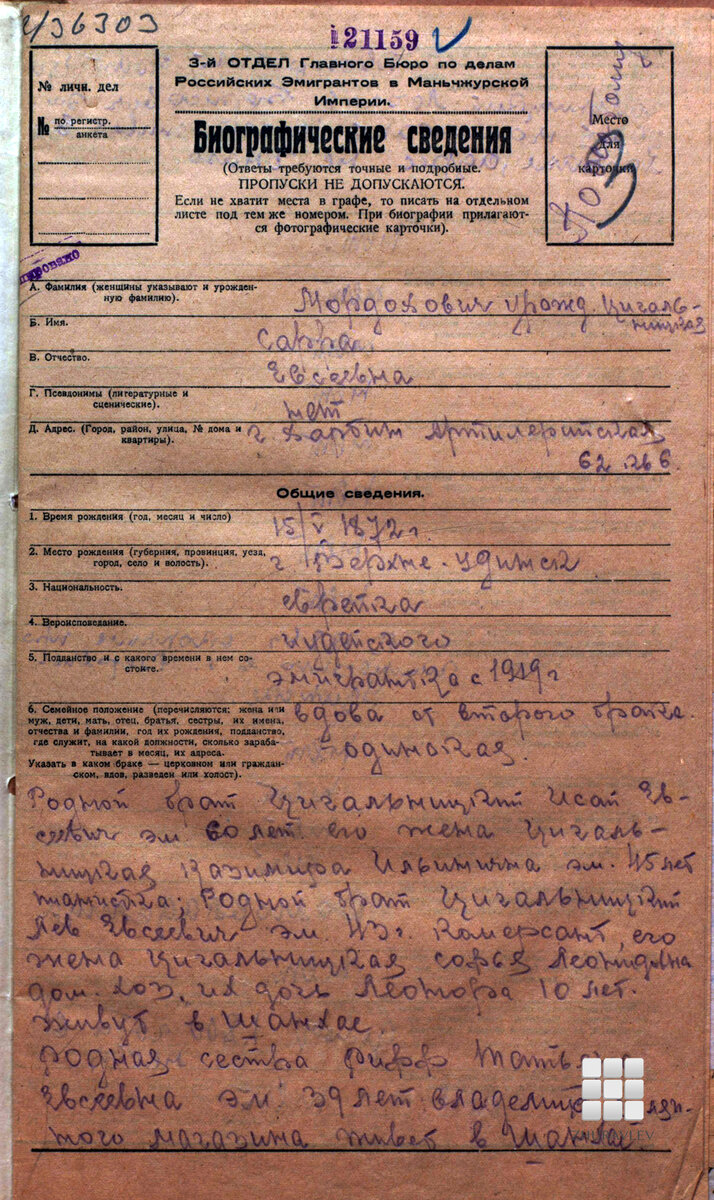 436303
121159
3-й ОТДЕЛ Главного Бюро по делам
Российских Эмигрантов в Маньчжурской
Империи.
№ личн. дел
№ по регистр.
анкета
Место
для
карточки
Биографические сведения
(Ответы требуются точные и подробные.
ПРОПУСКИ НЕ ДОПУСКАЮТСЯ.
Если не хватит места в графе, то писать на отдельном
листе под тем же номером. При биографии прилагают-
ся фотографические карточки).
А. Фамилия (женщины указывают и урожден-
ную фамилию).
Мордохович урожд. Цигаль-
ницкая
Б. Имя.
Сарра
В. Отчество.
Евсеевна
Г. Псевдонимы (литературные и
сценические).
нет
Д. Адрес. (Город, район, улица, № дома и
квартиры).
г. Харбин Артилерийская
62
Общие сведения.
1. Время рождения (год, месяц и число)
15/V 1872 г.
2. Место рождения (губерния, провинция, уезд,
город, село и волость).
г. Верхне-удинск
3. Национальность.
еврейка
4. Вероисповедание.
иудейского
5. Подданство и с какого времени в нем со-
стоите.
эмигрантка с 1919 г
6. Семейное положение (перечисляются: жена или
муж, дети, мать, отец, братья, сестры, их имена,
отчества и фамилии, год их рождения, подданство,
где служит, на какой должности, сколько зараба-
тывает в месяц, их адреса.
Указать в каком браке — церковном или граждан-
ском, вдов, разведен или холост).
вдова от второго брака.
одинокая.
Родной брат Цигальницкий Исай Ев-
сеевич эм. 60 лет его жена Цигаль-
ницкая Казимира Ильинична эм. 45 лет
пианистка; Родной брат Цигальницкий
Лев Евсеевич эм. 43 г. Комерсант, его
жена Цигальницкая Софья Леонидовна
дом. хоз, их дочь Леонора 10 лет.
живут в Шанхае.
Родная сестра Рифф Татьяна
Евсеевна эм 39 лет
магазина живет в Шанхай.